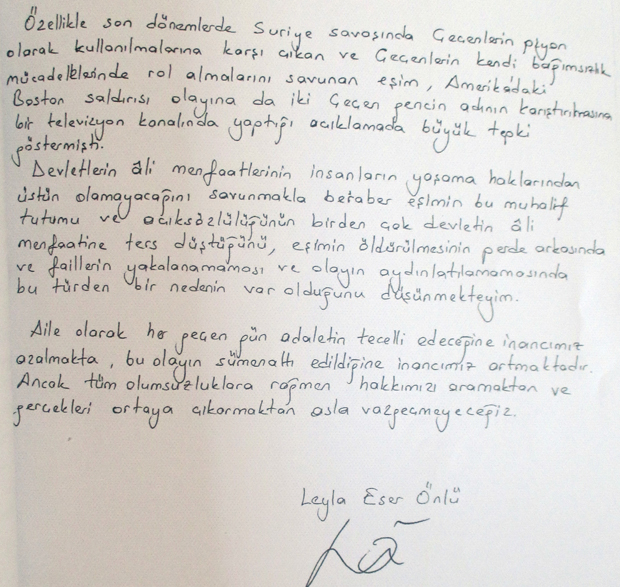 Özellikle son dönemlerde Suriye savaşında Çeçenlerin piyon
olarak kullanılmalarına karşı çıkan ve Çeçenlerin kendi bağımsızlık
mücadelelerinde rol almalarını savunan eşim, Amerika'daki
Boston saldırısı olayına da iki Çeçen gencin adının karıştırılmasına
bir televizyon kanalında yaptığı açıklamada büyük tepki
göstermişti.
Devletlerin âli menfaatlerinin insanların yaşama haklarından
üstün olamayacağını savunmakla beraber eşimin bu muhalif
tutumu ve açıksözlülüğünün birden çok devletin âli
menfaatine ters düştüğünü, eşimin öldürülmesinin perde arkasında
ve faillerin yakalanamaması ve olayın aydınlatılamamasında
bu türden bir nedenin var olduğunu düşünmekteyim.
Aile olarak her geçen gün adaletin tecelli edeceğine inancımız
azalmakta, bu olayın sümenaltı edildiğine inancımız artmaktadır.
Ancak tüm olumsuzluklara rağmen hakkımızı aramaktan ve
gerçekleri ortaya çıkarmaktan asla vazgeçmeyeceğiz.
Leyla Eser Ünlü